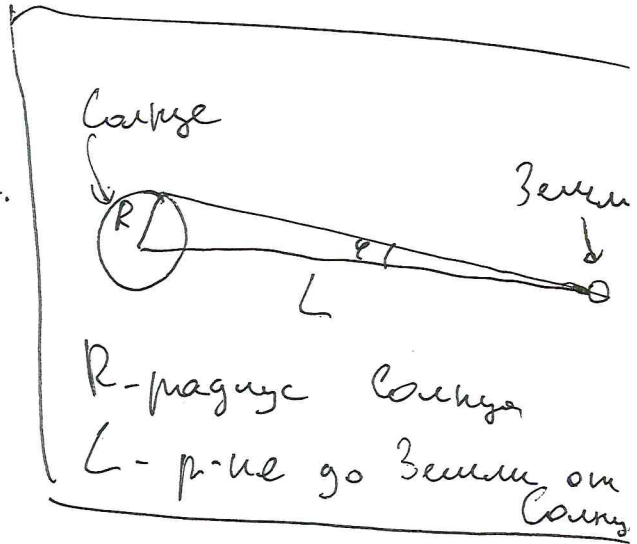 Солнце
Земл
R
φ
L
R - радиус Солнца
L - р-ие до Земли от
Солнц